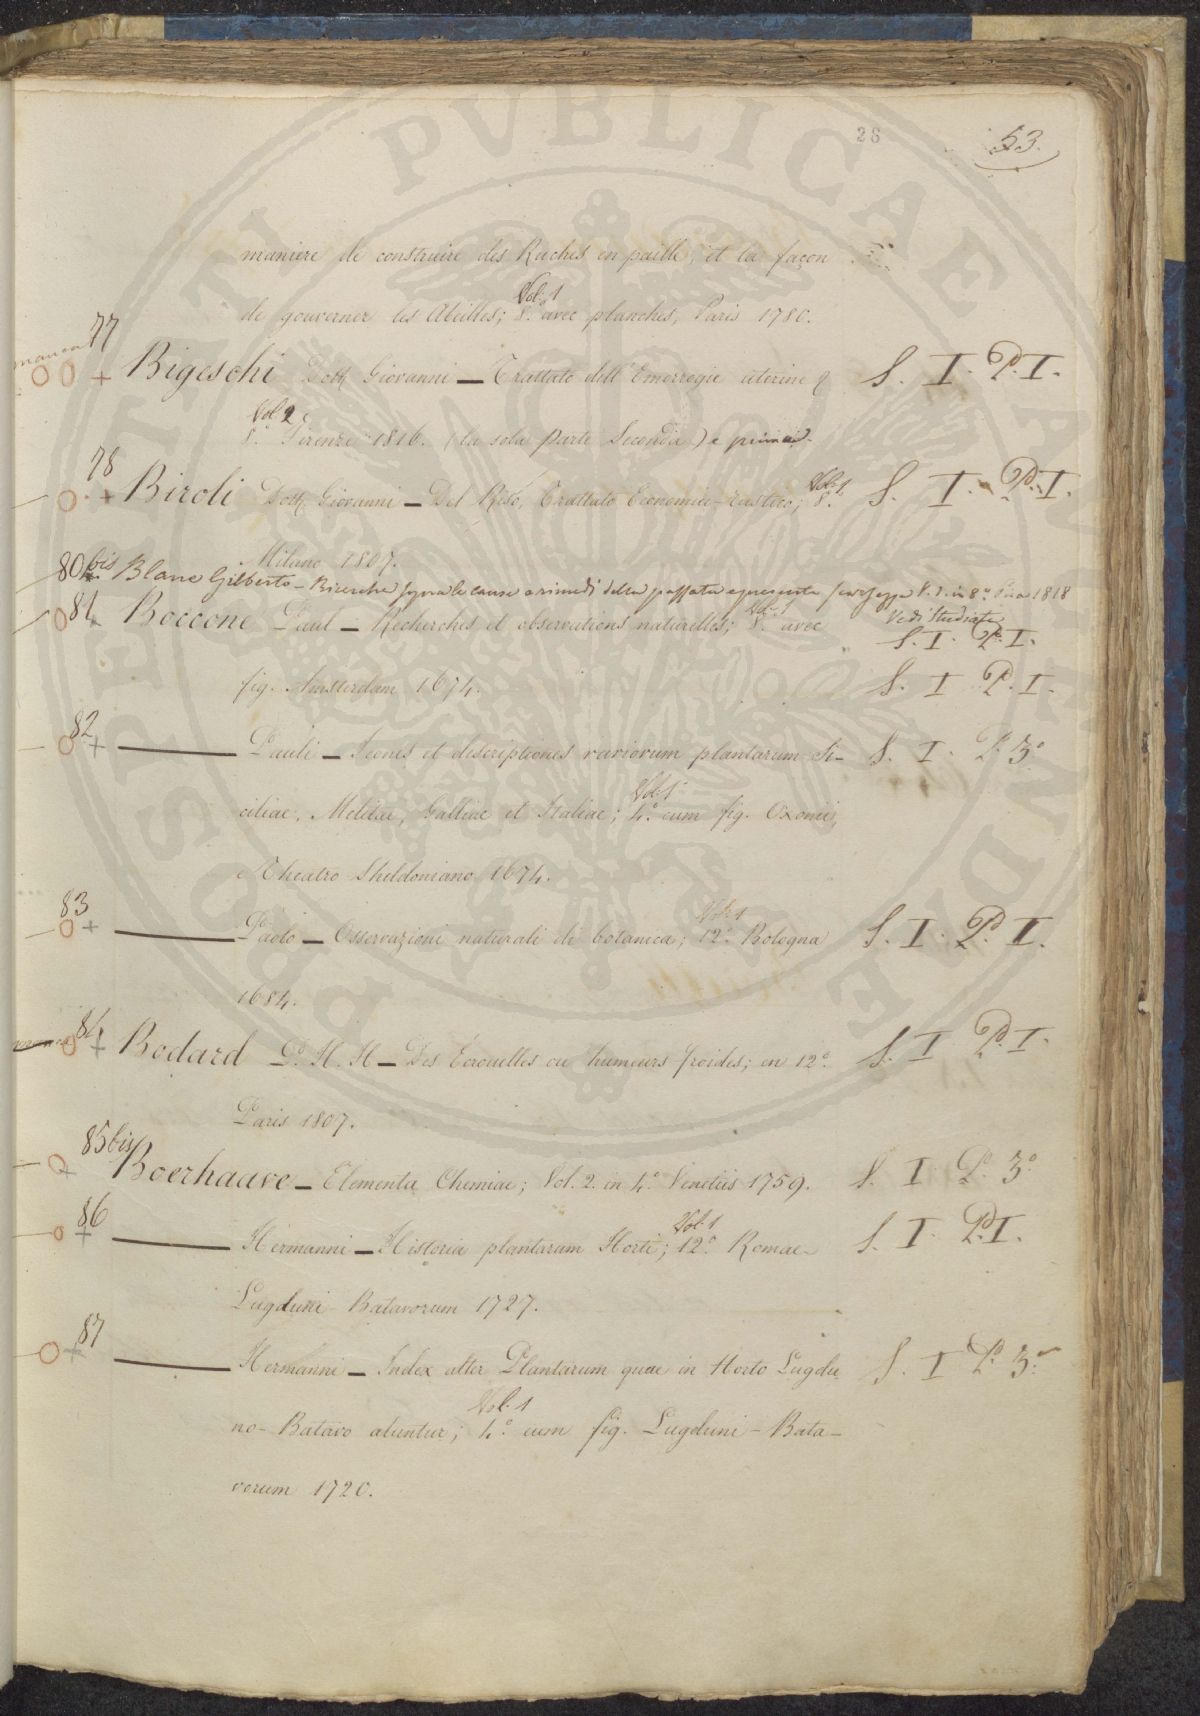 28
53.
maniere de construire des Ruches en paille, et la façon
de gouverner les Abeilles; Vol. 1 8.° avec planches, Paris 1780.
manca 77 Bigeschi Dott. Giovanni — Trattato dell'Emorragie uterine S. I. P. I.
Vol 2 8.° Firenze 1816. (la sola parte Seconda) e prima.
78 Biroli Dott. Giovanni — Del Riso, Trattato Economico-rustico; Vol. 1 8.° S. I. P. I.
Milano 1807.
80 bis Blane Gilberto — Ricerche sopra le cause e rimedi della passata e presente scarsezza V. 1. in 8° Pisa 1818
Vedi Studiati
81 Boccone Paul — Recherches et observations naturelles; Vol. 1 8.° avec S. I. P. I.
fig. Amsterdam 1674. S. I. P. I.
82 — Pauli — Icones et descriptiones rariorum plantarum Si- S. I. P. 3.°
ciliae, Melitae, Galliae et Italiae; Vol. 1 4.° cum fig. Oxonii,
Theatro Sheldoniano 1674.
83 — Paolo — Osservazioni naturali di botanica; Vol. 1 12.° Bologna S. I. P. I.
1684.
manca 84 Bodard P. H. H — Des Ecrouelles ou humeurs froides; en 12.° S. I. P. I.
Paris 1807.
85 bis Boerhaave — Elementa Chemiae; Vol. 2. in 4.° Venetiis 1759. S. I. P. 3.°
86 — Hermanni — Historia plantarum Horti; Vol. 1 12.° Romae- S. I. P. I.
Lugduni Batavorum 1727.
87 — Hermanni — Index alter Plantarum quae in Horto Lugdu S. I P. 3.°
no-Batavo aluntur; Vol. 1 4.° cum fig. Lugduni-Bata-
vorum 1720.
PROSPERITATI PVBLICAE AVGENDAE